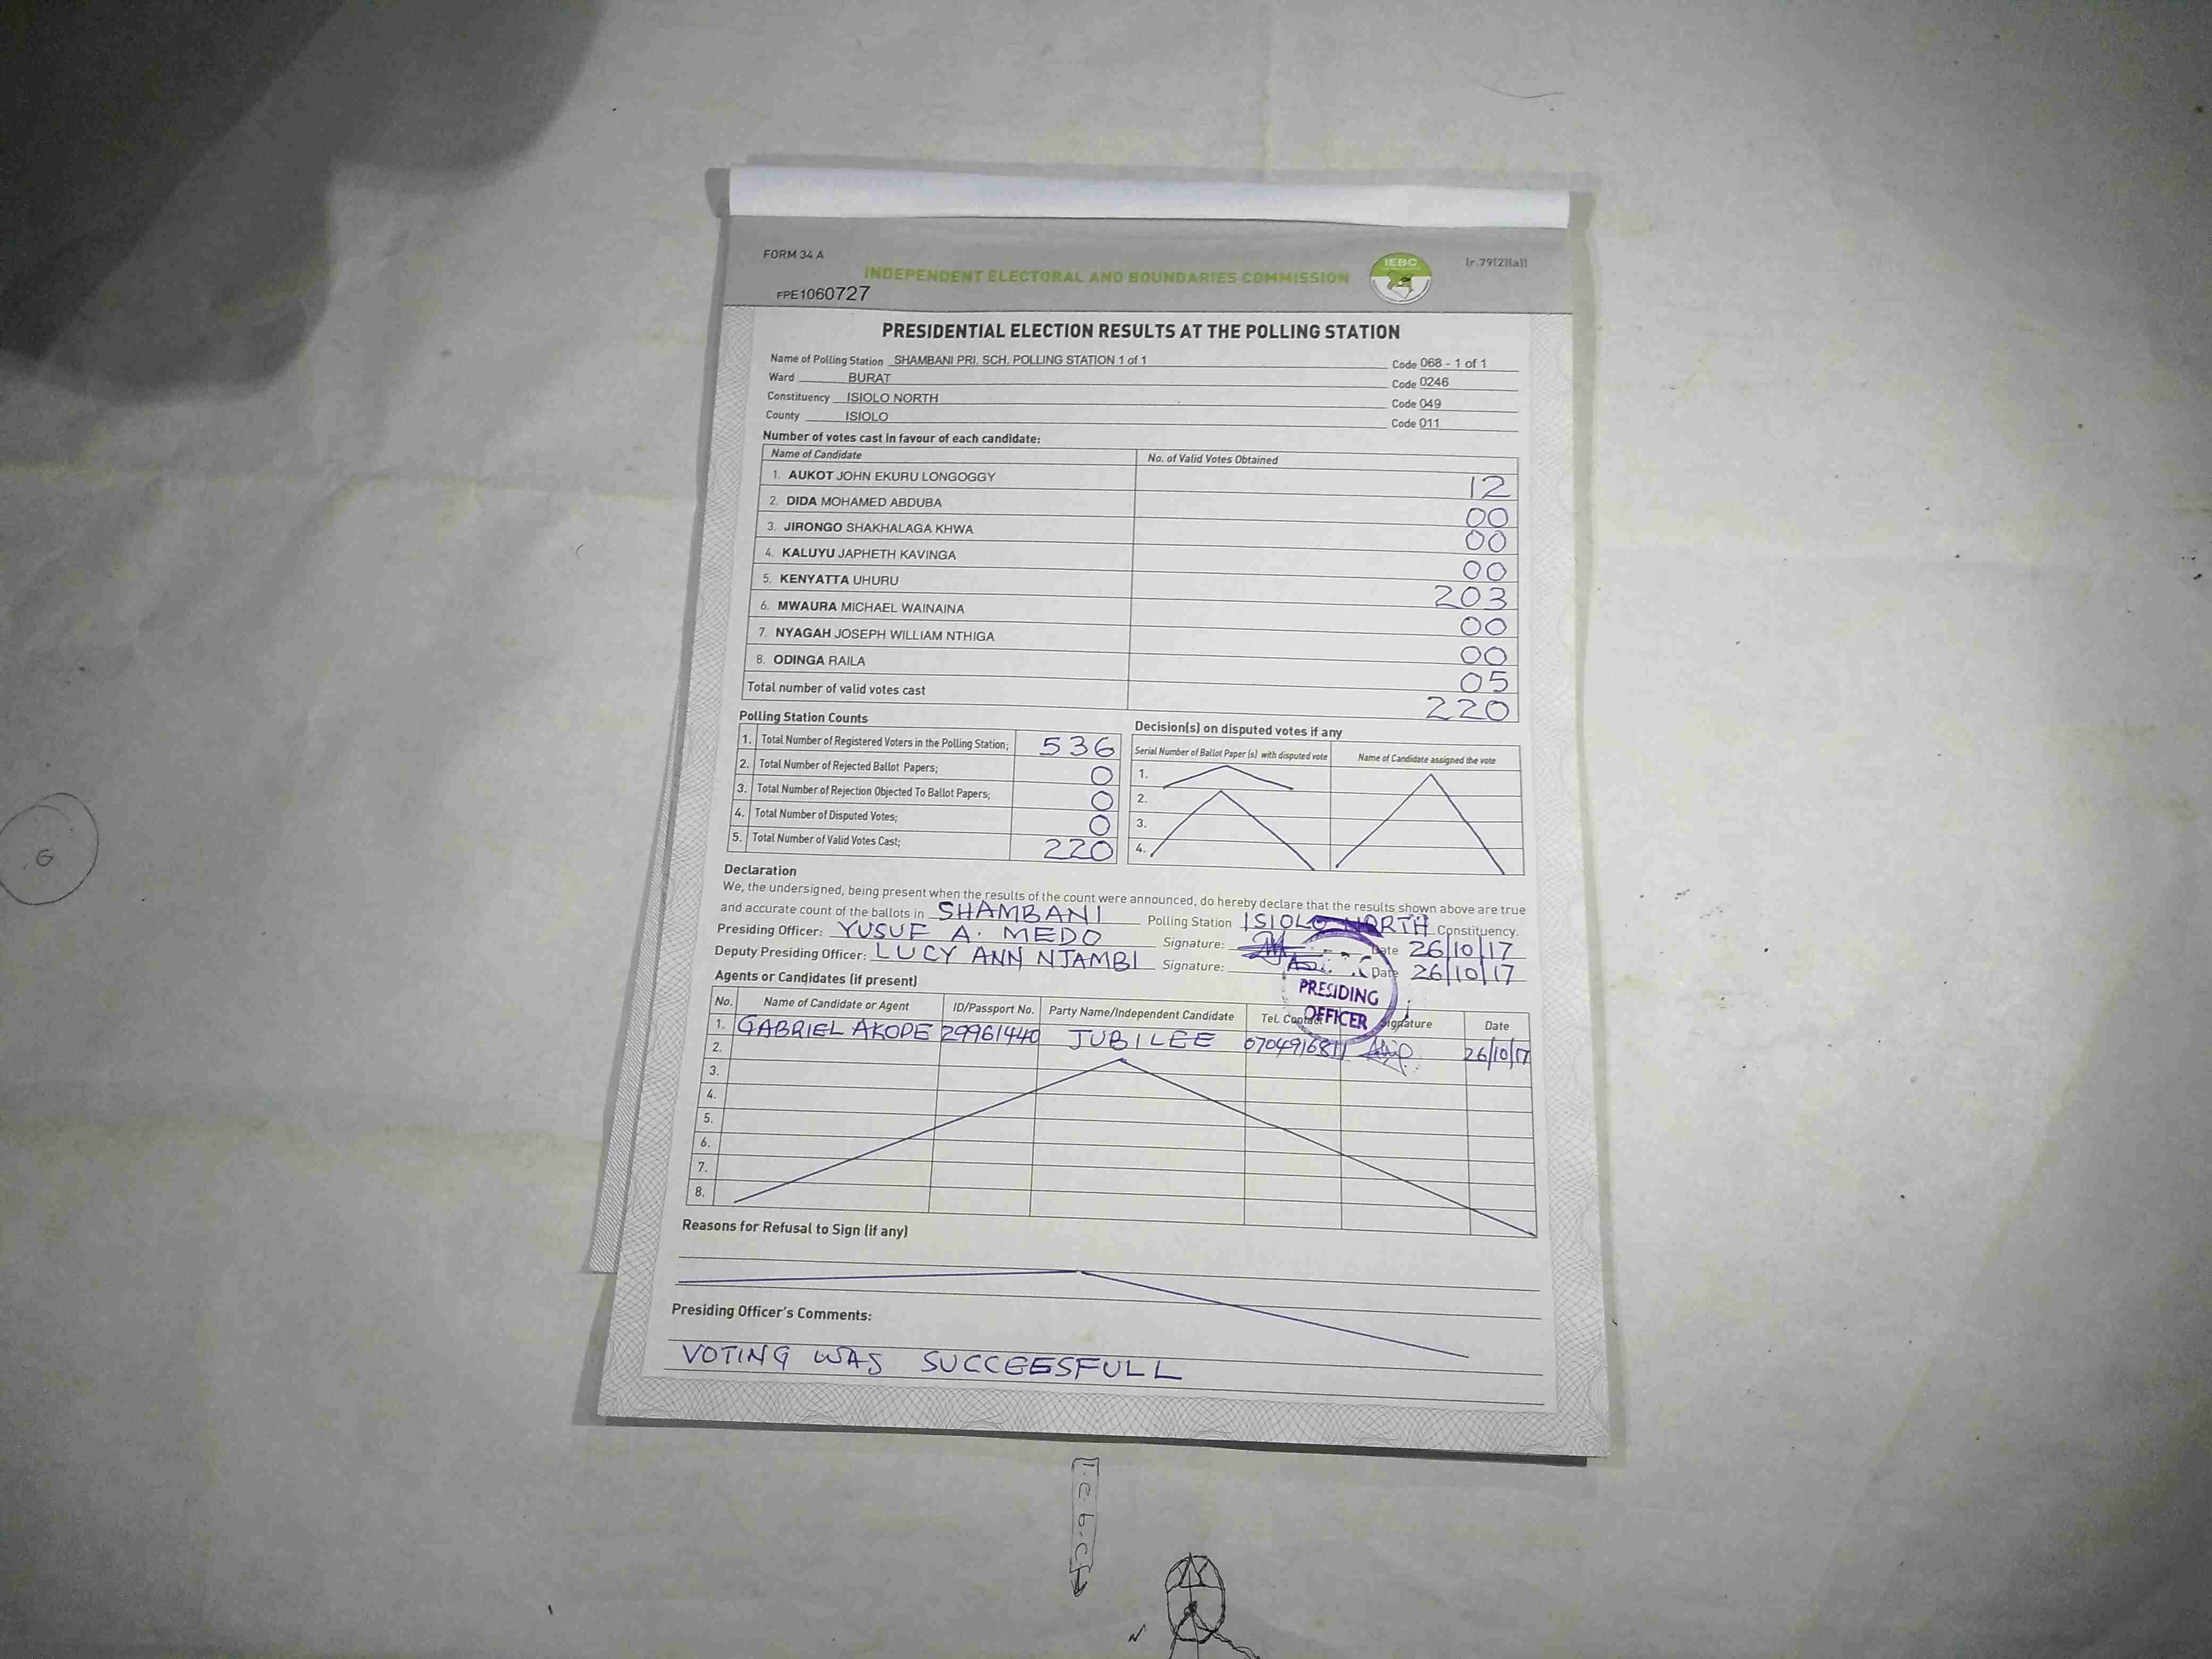 FORM 34 A
INDEPENDENT ELECTORAL AND BOUNDARIES COMMISSION
IEBC
(r.79(2)(a))
FPE1060727
PRESIDENTIAL ELECTION RESULTS AT THE POLLING STATION
Name of Polling Station SHAMBANI PRI. SCH. POLLING STATION 1 of 1 Code 068 - 1 of 1
Ward BURAT Code 0246
Constituency ISIOLO NORTH Code 049
County ISIOLO Code 011
Number of votes cast in favour of each candidate:
Name of Candidate No. of Valid Votes Obtained
1. AUKOT JOHN EKURU LONGOGGY 12
2. DIDA MOHAMED ABDUBA 00
3. JIRONGO SHAKHALAGA KHWA 00
4. KALUYU JAPHETH KAVINGA 00
5. KENYATTA UHURU 203
6. MWAURA MICHAEL WAINAINA 00
7. NYAGAH JOSEPH WILLIAM NTHIGA 00
8. ODINGA RAILA 05
Total number of valid votes cast 220
Polling Station Counts
1. Total Number of Registered Voters in the Polling Station; 536
2. Total Number of Rejected Ballot Papers; 0
3. Total Number of Rejection Objected To Ballot Papers; 0
4. Total Number of Disputed Votes; 0
5. Total Number of Valid Votes Cast; 220
Decision(s) on disputed votes if any
Serial Number of Ballot Paper (s) with disputed vote Name of Candidate assigned the vote
1.
2.
3.
4.
Declaration
We, the undersigned, being present when the results of the count were announced, do hereby declare that the results shown above are true
and accurate count of the ballots in SHAMBANI Polling Station ISIOLO NORTH Constituency.
Presiding Officer: YUSUF A. MEDO Signature: Date 26/10/17
Deputy Presiding Officer: LUCY ANN NJAMBI Signature: Date 26/10/17
PRESIDING
OFFICER
Agents or Candidates (if present)
No. Name of Candidate or Agent ID/Passport No. Party Name/Independent Candidate Tel. Contact Signature Date
1. GABRIEL AKOPE 29961440 JUBILEE 0704916811 26/10/17
2.
3.
4.
5.
6.
7.
8.
Reasons for Refusal to Sign (if any)
Presiding Officer's Comments:
VOTING WAS SUCCEESFULL
G
I.e.b.c